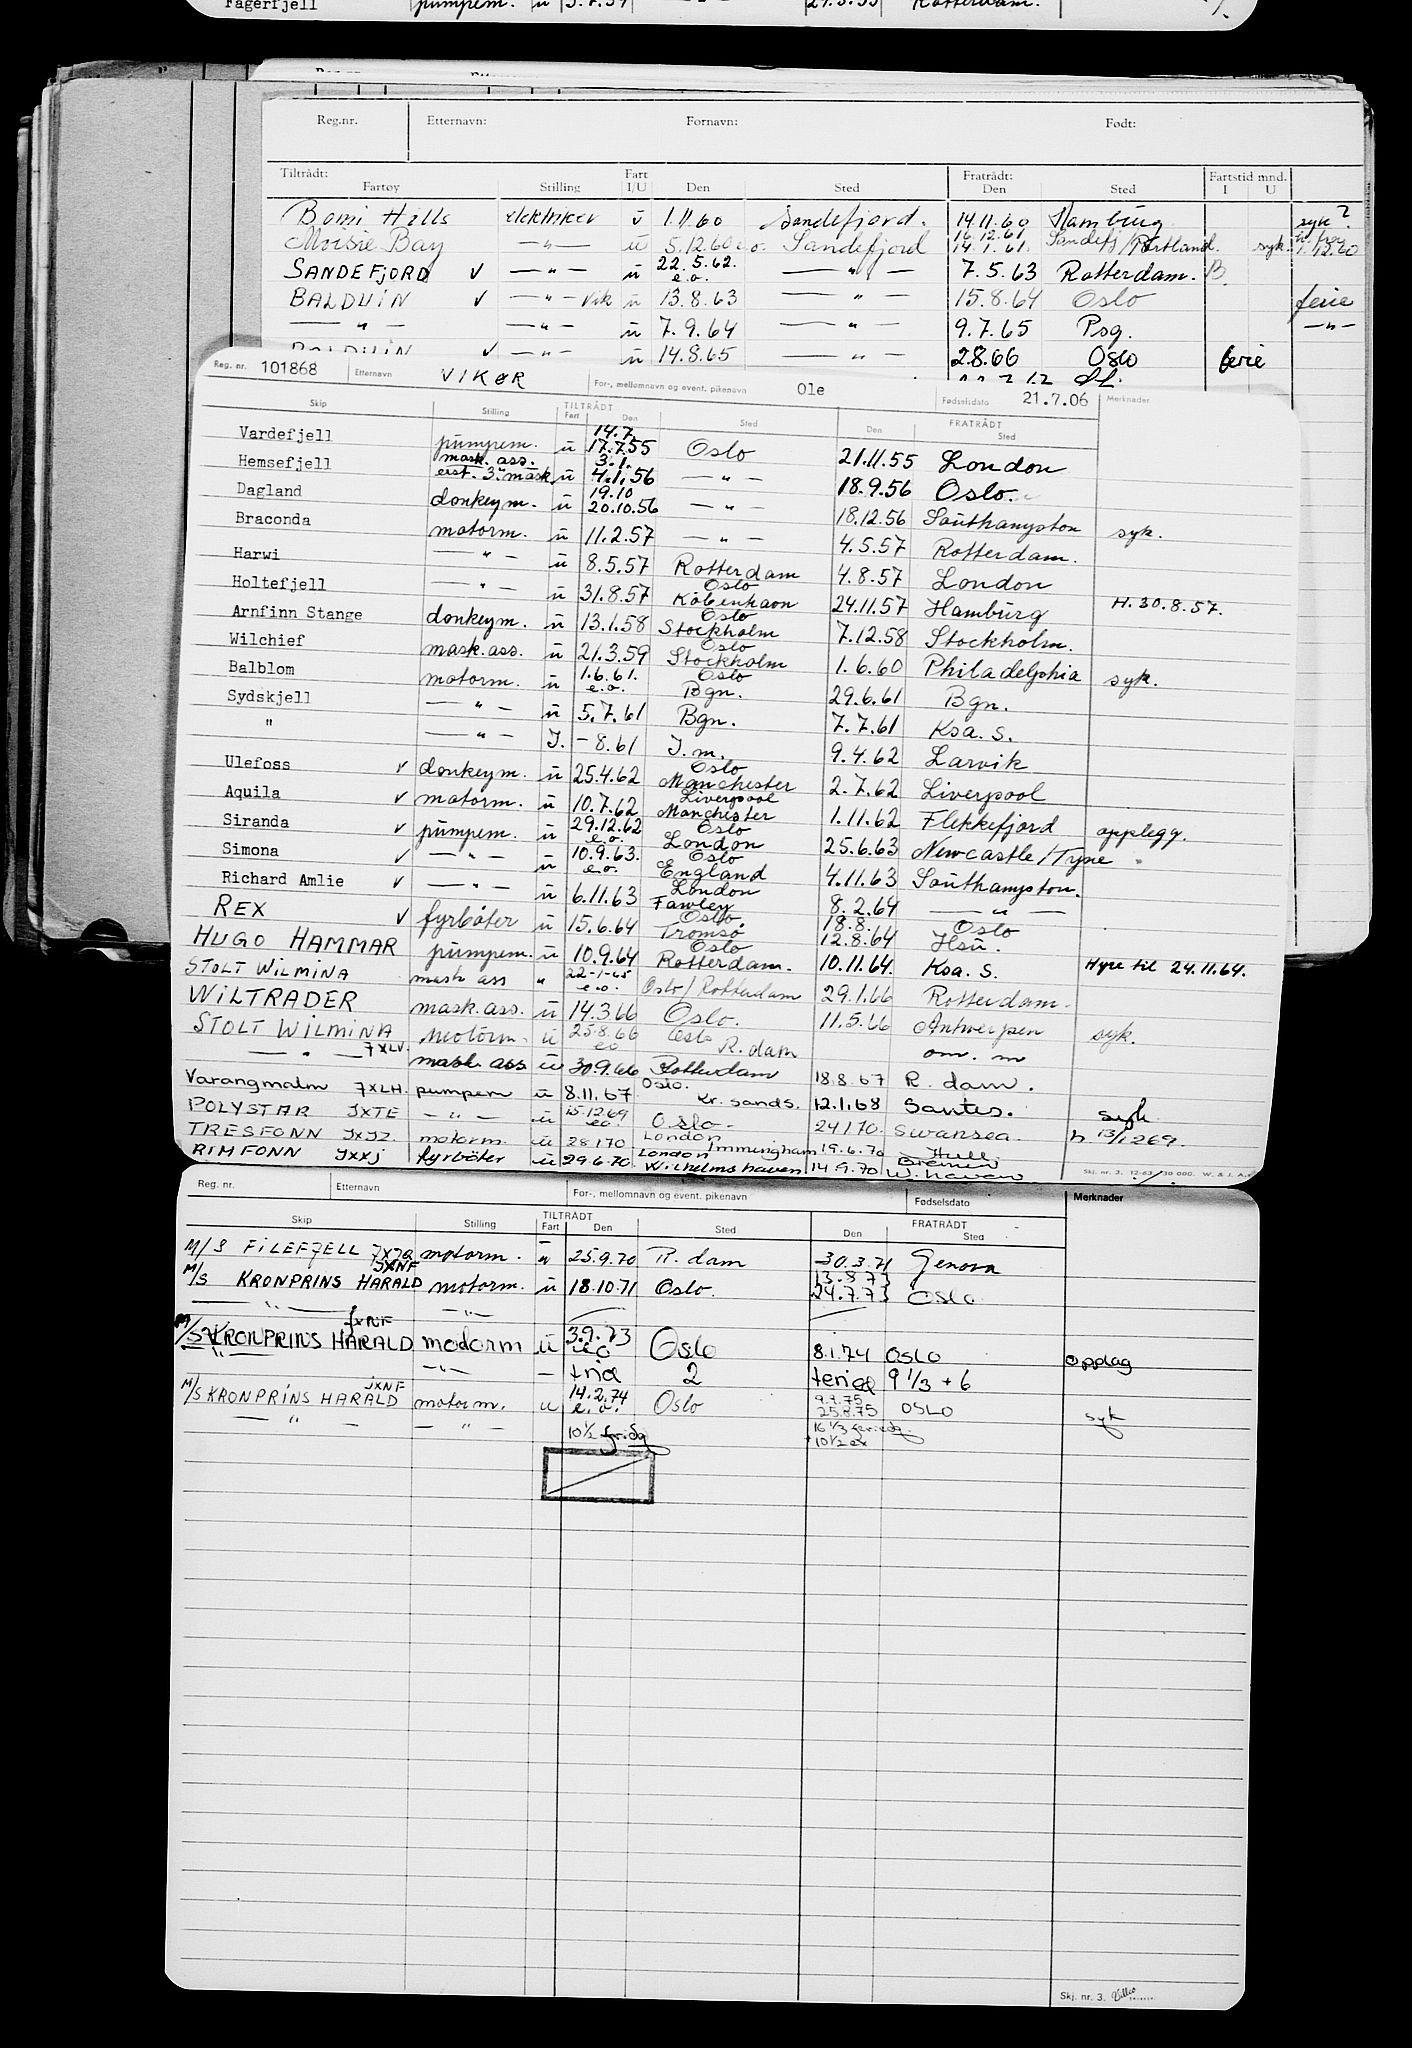 Fagerfjell pumpem. ü Rotterdam.
Reg.nr. Etternavn: Fornavn: Født:
Tiltrådt: Fart Fratrådt: Fartstid mnd.
Fartøy Stilling I/U Den Sted Den Sted I U
Bomi Hills elektriker ü 1.11.60 Sandefjord. 14.11.60 Hamburg syk?
Moisie Bay —"— ü 5.12.60 e.o. Sandefjord 16.12.61 14.1.61. Sandefj/Portland. syk. 1.12.60
SANDEFJORD v —"— ü 22.5.62. e.o. —"— 7.5.63 Rotterdam. B
BALDUIN v —"— Vik ü 13.8.63 —"— 15.8.64 Oslo ferie
—"— —"— ü 7.9.64 —"— 9.7.65 Psg. —"—
BALDUIN v —"— ü 14.8.65 —"— 2.8.66 Oslo ferie
Reg. nr. 101868 Etternavn VIKØR For-, mellomnavn og event. pikenavn Ole Fødselsdato 21.7.06 Merknader
Skip Stilling TILTRÅDT Fart Den Sted FRATRÅDT Den Sted
Vardefjell pumpem. ü 14.7. 17.7.55 Oslo 21.11.55 London
Hemsefjell mask. ass. eist. 3. mask. ü 3.1. 4.1.56 —"— 18.9.56 Oslo.
Dagland donkeym. ü 19.10 20.10.56 —"— 18.12.56 Southampton syk.
Braconda motorm. ü 11.2.57 —"— 4.5.57 Rotterdam.
Harwi —"— ü 8.5.57 Rotterdam 4.8.57 London
Holtefjell —"— ü 31.8.57 Oslo København 24.11.57 Hamburg H. 30.8.57.
Arnfinn Stange donkeym. ü 13.1.58 Oslo Stockholm 7.12.58 Stockholm.
Wilchief mask.ass. ü 21.3.59 Oslo Stockholm 1.6.60 Philadelphia syk.
Balblom motorm. ü 1.6.61. e.o. Oslo Bgn. 29.6.61 Bgn.
Sydskjell —"— ü 5.7.61 Bgn. 7.7.61 Ksa. S.
" —"— I. –8.61 I.m. 9.4.62 Larvik
Ulefoss v donkeym. ü 25.4.62 Oslo Manchester 2.7.62 Liverpool
Aquila v motorm. ü 10.7.62 Liverpool Manchester 1.11.62 Flekkefjord opplegg.
Siranda v pumpem. ü 29.12.62 e.o. Oslo London 25.6.63 Newcastle/Tyne "
Simona v —"— ü 10.9.63. e.o. Oslo England 4.11.63 Southampton.
Richard Amlie v —"— ü 6.11.63 London Fawley 8.2.64 —"—
REX v fyrbøter ü 15.6.64 Oslo Tromsø 18.8. 12.8.64 Oslo Hsü.
HUGO HAMMAR pumpem. ü 10.9.64 Oslo Rotterdam. 10.11.64. Ksa. S. Hyre til 24.11.64.
STOLT WILMINA mask ass " 22-1-65 e.o. Oslo/Rotterdam 29.1.66 Rotterdam.
WILTRADER mask.ass. ü 14.3.66 Oslo. 11.5.66 Antwerpen syk.
STOLT WILMINA motorm. ü 25.8.66 eo Oslo R.dam om. m
—"— JXLV. mask ass ü 30.9.66 Rotterdam 18.8.67 R. dam.
Varangmalm JXLH. pumpem ü 8.11.67 Oslo. Kr. sands. 12.1.68 Santes. syk
POLYSTAR JXTE —"— ü 15.12.69 eo. Oslo. 24.1.70. Swansea. h 13/12 69.
TRESFONN JXJZ. motorm. ü 28.1.70 London Immingham 19.6.70 Hull
RIMFONN JXXJ fyrbøter ü 29.6.70 London Wilhelmshaven 14.9.70 Bremen W.haven
Skj. nr. 3. 12-63/30 000. W. & J. A/S
Reg. nr. Etternavn For-, mellomnavn og event. pikenavn Fødselsdato Merknader
Skip Stilling TILTRÅDT Fart Den Sted FRATRÅDT Den Sted
M/S FILEFJELL JXJQ motorm. ü 25.9.70 R. dam 30.3.71 Genova
M/S KRONPRINS HARALD JXNF motorm. ü 18.10.71 Oslo. 13.8.73 24.7.73 Oslo
—"— —"—
M/S KRONPRINS HARALD JXNF motorm ü 3.9.73 eo Oslo 8.1.74 OSLO Opplag
—"— —"— – frid 2 feried 9 1/3 + 6
M/S KRONPRINS HARALD JXNF motorm. u 14.2.74 e.o. Oslo 9.7.75 25.8.75 OSLO syk
—"— —"— 10½ fridg 16 1/3 feriedg. + 10½ ex
Skj. nr. 3.